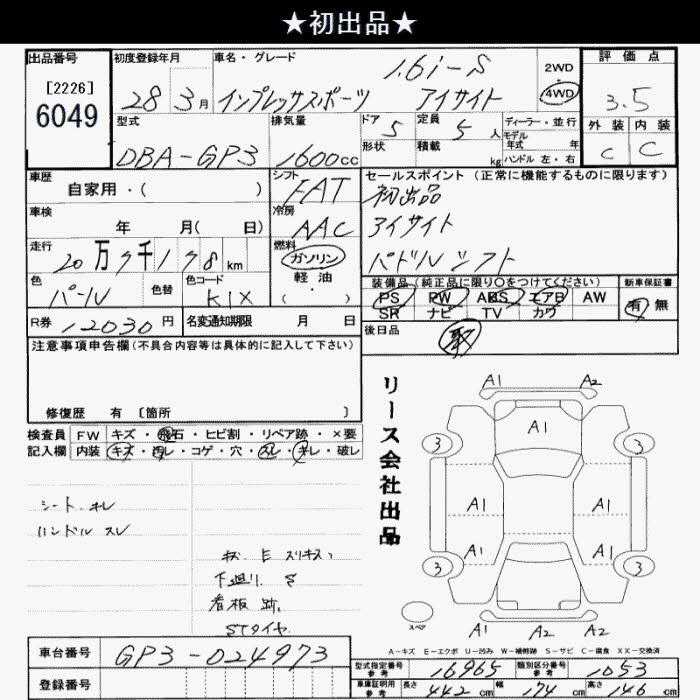 ★初出品★
出品番号
[2226]
6049
初度登録年月
28 3月
車名・グレード
1.6i-S
インプレッサスポーツ アイサイト
2WD
4WD
評価点
3.5
外装 内装
C C
型式
DBA-GP3
排気量
1600cc
ドア 5
形状
定員 5人
積載 kg
ディーラー・並行
モデル
年式 年
ハンドル 左・右
車歴
自家用・( )
シフト
FAT
セールスポイント (正常に機能するものに限ります)
初出品
アイサイト
パドルシフト
車検
年 月( 日)
冷房
AAC
走行
20万7千178km
燃料
ガソリン
軽油
・
( )
色
パール
色替
色コード
K1X
装備品(純正品に限り○をつけてください)
PS PW ABS エアB AW
SR ナビ TV カワ
新車保証書
有 無
R券 12030円
名変通知期限 月 日
後日品
取
注意事項申告欄(不具合内容等は具体的に記入して下さい)
修復歴 有 [箇所 ]
検査員
記入欄
FW キズ・飛石・ヒビ割・リペア跡・×要
内装 キズ・汚レ・コゲ・穴・スレ・キレ・破レ
シート キレ
ハンドル スレ
キズ E スリキズ
下廻り S
看板跡
STタイヤ
リース会社出品
A1 A2
A1
3 3
A1 A1
A1 A1
3 3
スペア
A1 A2 A2
A-キズ E-エクボ U-凹み W-補修跡 S-サビ C-腐食 XX-交換済
車台番号
GP3-024973
登録番号
型式指定番号
参考
16965
類別区分番号
参考
1053
車庫証明用
参考
長さ 442cm 幅 174cm 高さ 146cm